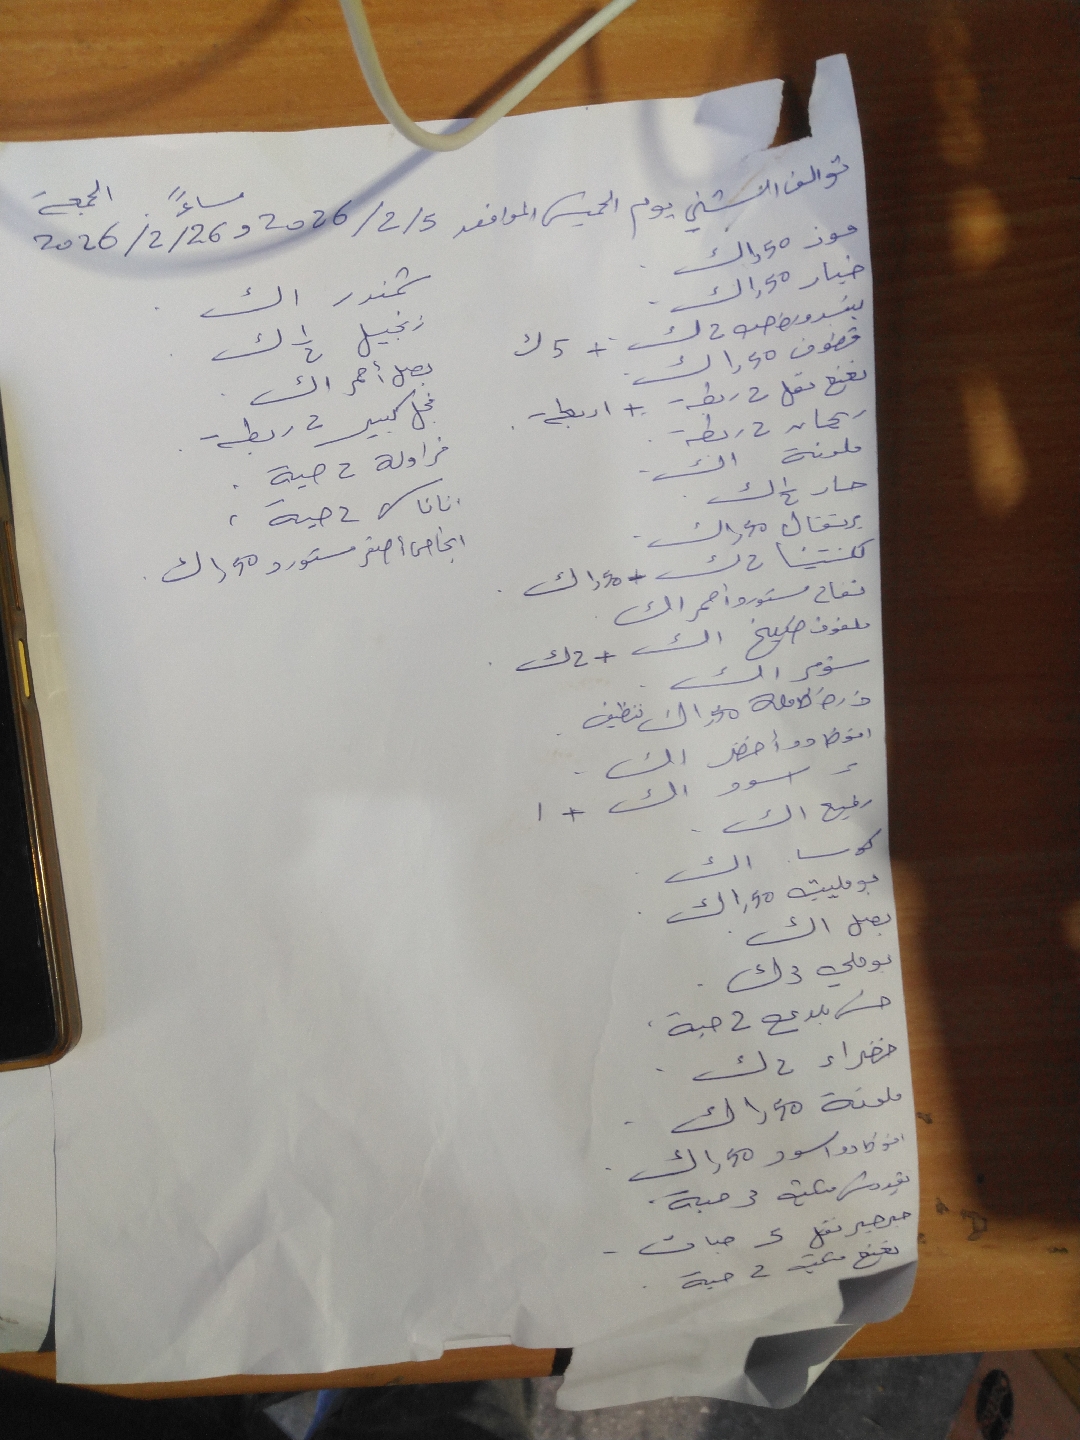 توالف الاثنين يوم الخميس الموافق 2026/2/5 و 2026/2/26
مساءً الجمعة
موز 1,50ك
خيار 1,50ك
بندورة حبه 2ك + 5ك
قطوف 1,50ك
نعنع نقل 2 ربطة + 1 ربطة
ريحان 2 ربطة
ملونة 1ك
حار 1/2ك
برتقال 1,50ك
كلمنتينا 2ك + 1,50ك
تفاح مستورد أحمر 1ك
ملفوف طبيخ 1ك + 2ك
ثوم 1ك
ذرة كاملة 1,50ك تنظيف
افوكادو أخضر 1ك
= اسود 1ك + 1
رفيع 1ك
كوسا 1ك
بوملييت 1,50ك
بصل 1ك
بوملي 3ك
خس بلدي 2 حبة
خضراء 2ك
ملونة 1,50ك
افوكادو اسود 1,50ك
بقدونس علبة 3 حبة
جرجير نقل 5 حبات
نعنع علبة 2 حبة
شمندر 1ك
زنجبيل 1/2ك
بصل أحمر 1ك
فجل كبير 2 ربطة
فراولة 2 حبة
اناناس 2 حبة
انجاص أصفر مستورد 1,50ك